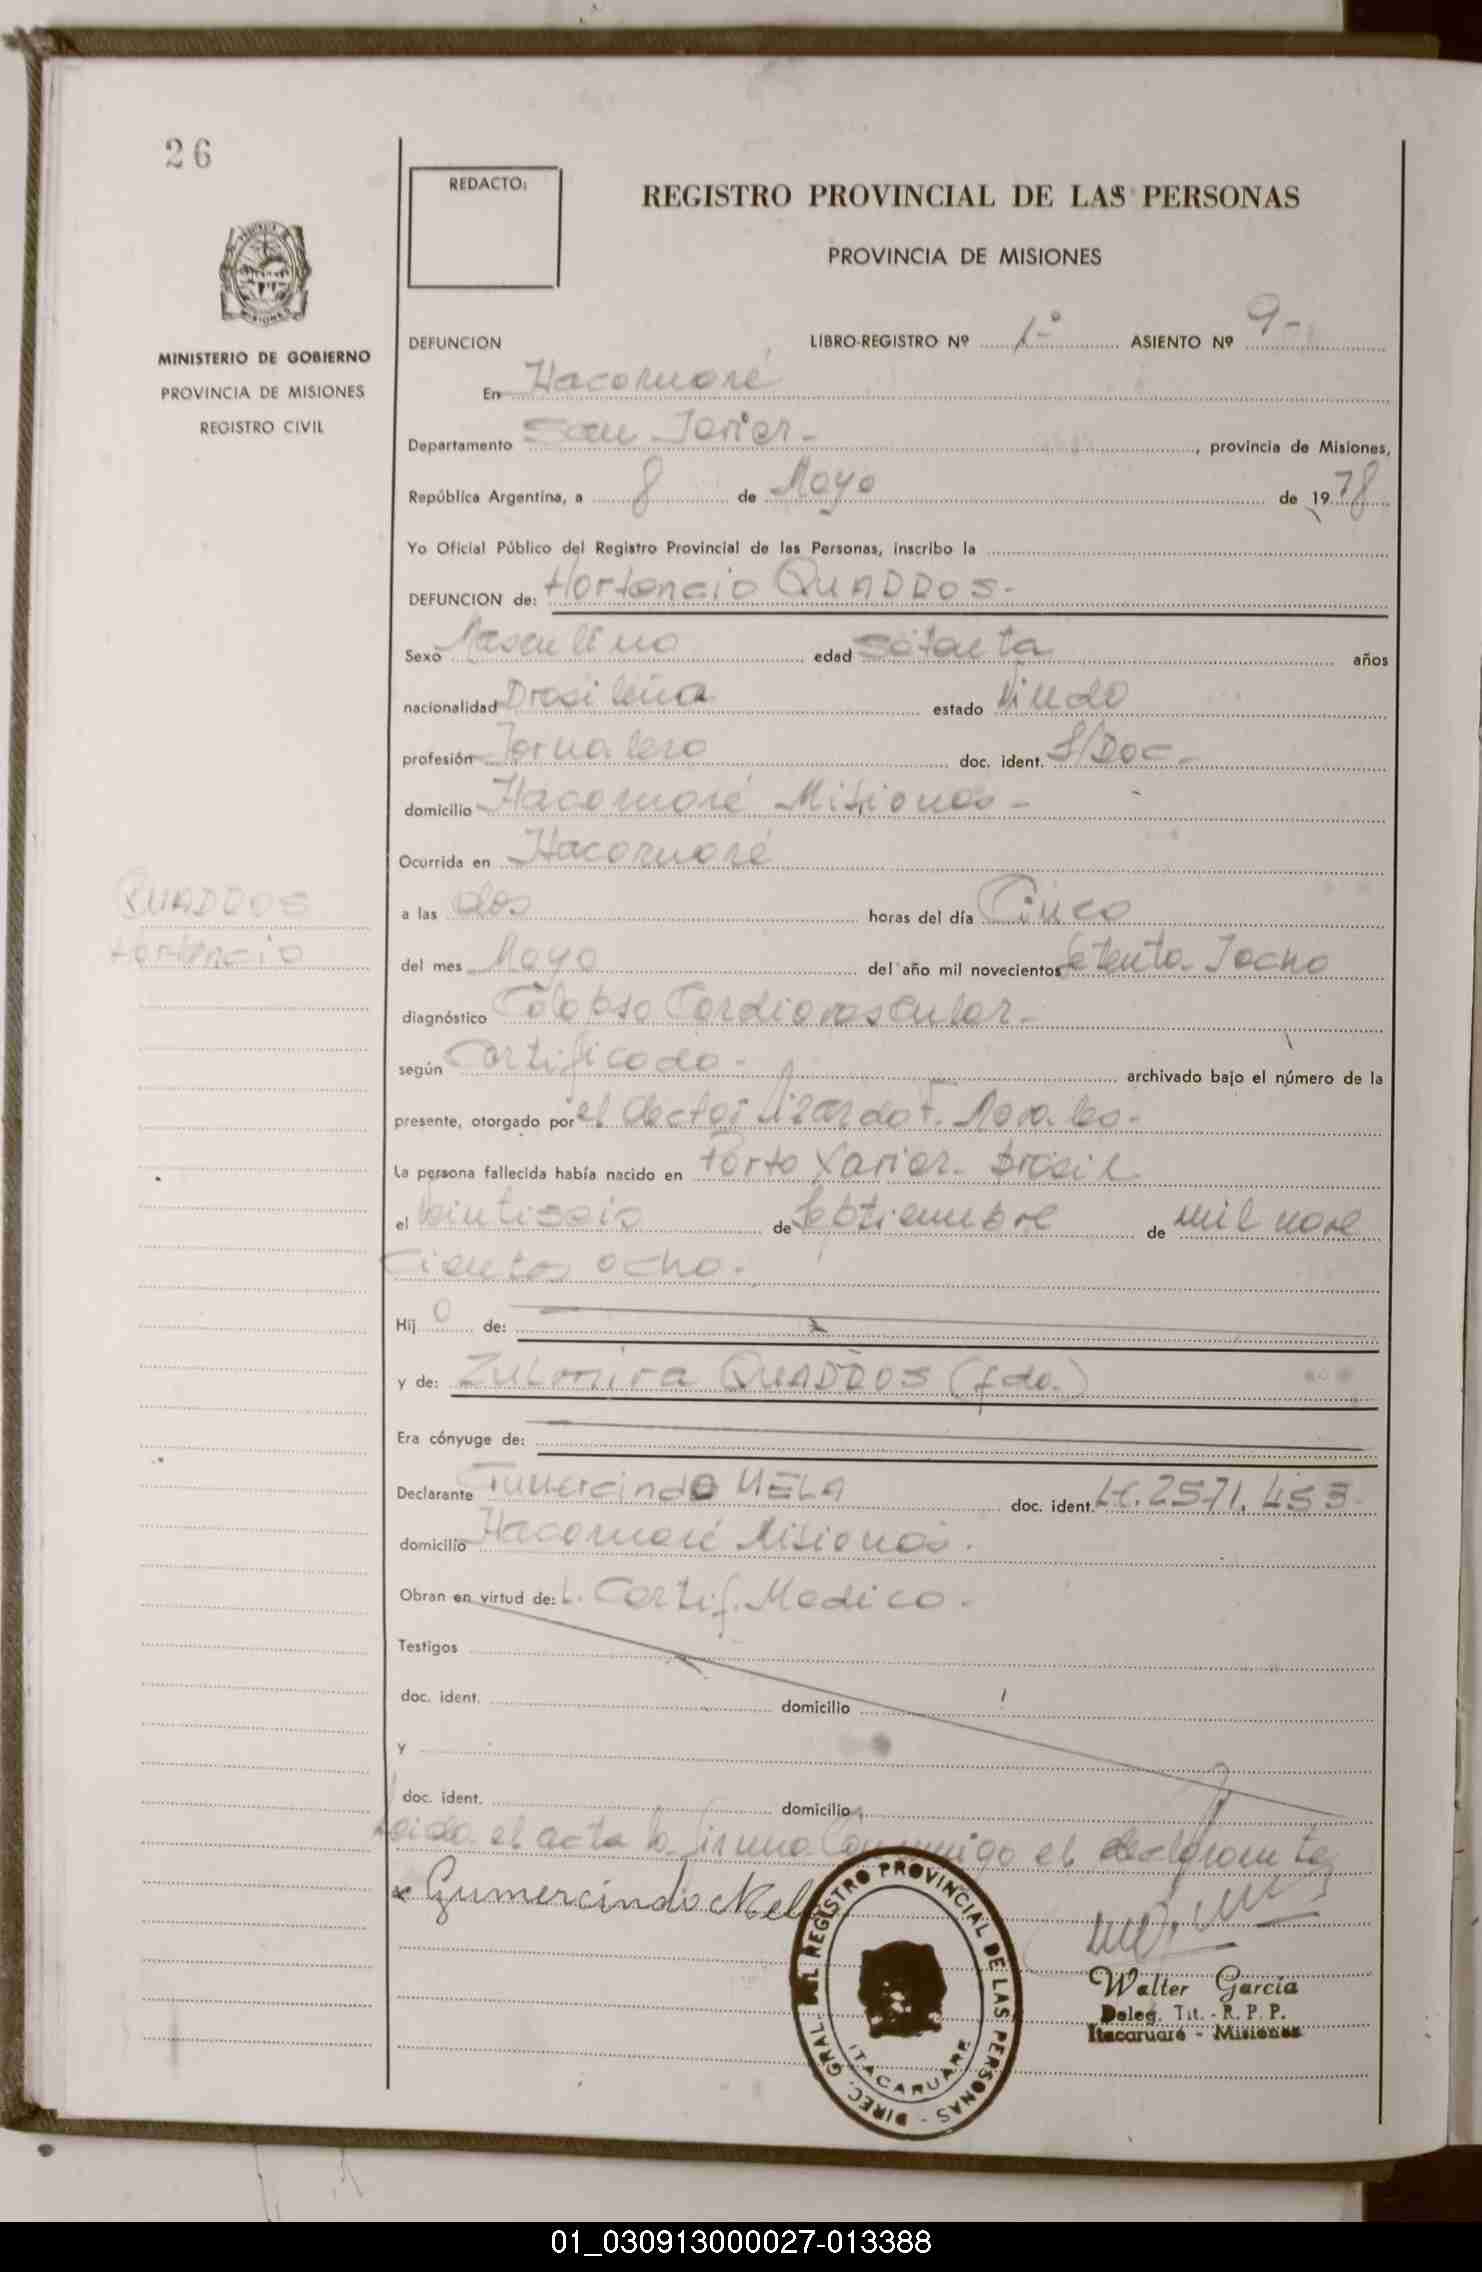 26
REDACTO:
REGISTRO PROVINCIAL DE LAS PERSONAS
PROVINCIA DE MISIONES
MINISTERIO DE GOBIERNO
PROVINCIA DE MISIONES
REGISTRO CIVIL
DEFUNCION LIBRO-REGISTRO Nº 1º ASIENTO Nº 9-
En Itacaruaré
Departamento San Javier- , provincia de Misiones,
República Argentina, a 8 de Mayo de 1978
Yo Oficial Público del Registro Provincial de las Personas, inscribo la
DEFUNCION de: Hortencio QUADDOS-
Sexo Masculino edad setenta años
nacionalidad Brasileña estado Viudo
profesión Jornalero doc. ident. S/Doc-
domicilio Itacaruaré Misiones-
Ocurrida en Itacaruaré
QUADDOS
Hortencio
a las dos horas del día Cinco
del mes Mayo del año mil novecientos Setenta Iocho
diagnóstico Colapso Cardiovascular-
según Certificado- archivado bajo el número de la
presente, otorgado por el doctor Lizardo F. Morales-
La persona fallecida había nacido en Porto Xavier- Brasil
el Veintiseis de Septiembre de mil nove
cientos ocho-
Hijo de:
y de: Zulmira QUADDOS (fdo.)
Era cónyuge de:
Declarante Gumercindo MELA doc. ident.
domicilio Itacaruaré Misiones.
Obran en virtud de: L. Certif. Medico-
Testigos
doc. ident. domicilio
y
doc. ident. domicilio
Leida el acta la firma Conmigo el declarante
x Gumercindo Mela
DIREC. GRAL. DEL REGISTRO PROVINCIAL DE LAS PERSONAS -
ITACARUARE
Walter García
Deleg. Tit. - R. P. P.
Itacaruaré - Misiones
01_030913000027-013388